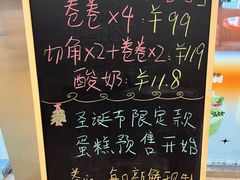 卷卷×4:¥99
切角×2+卷卷×2:¥119
酸奶:¥11.8
圣诞节限定款
蛋糕预售开始